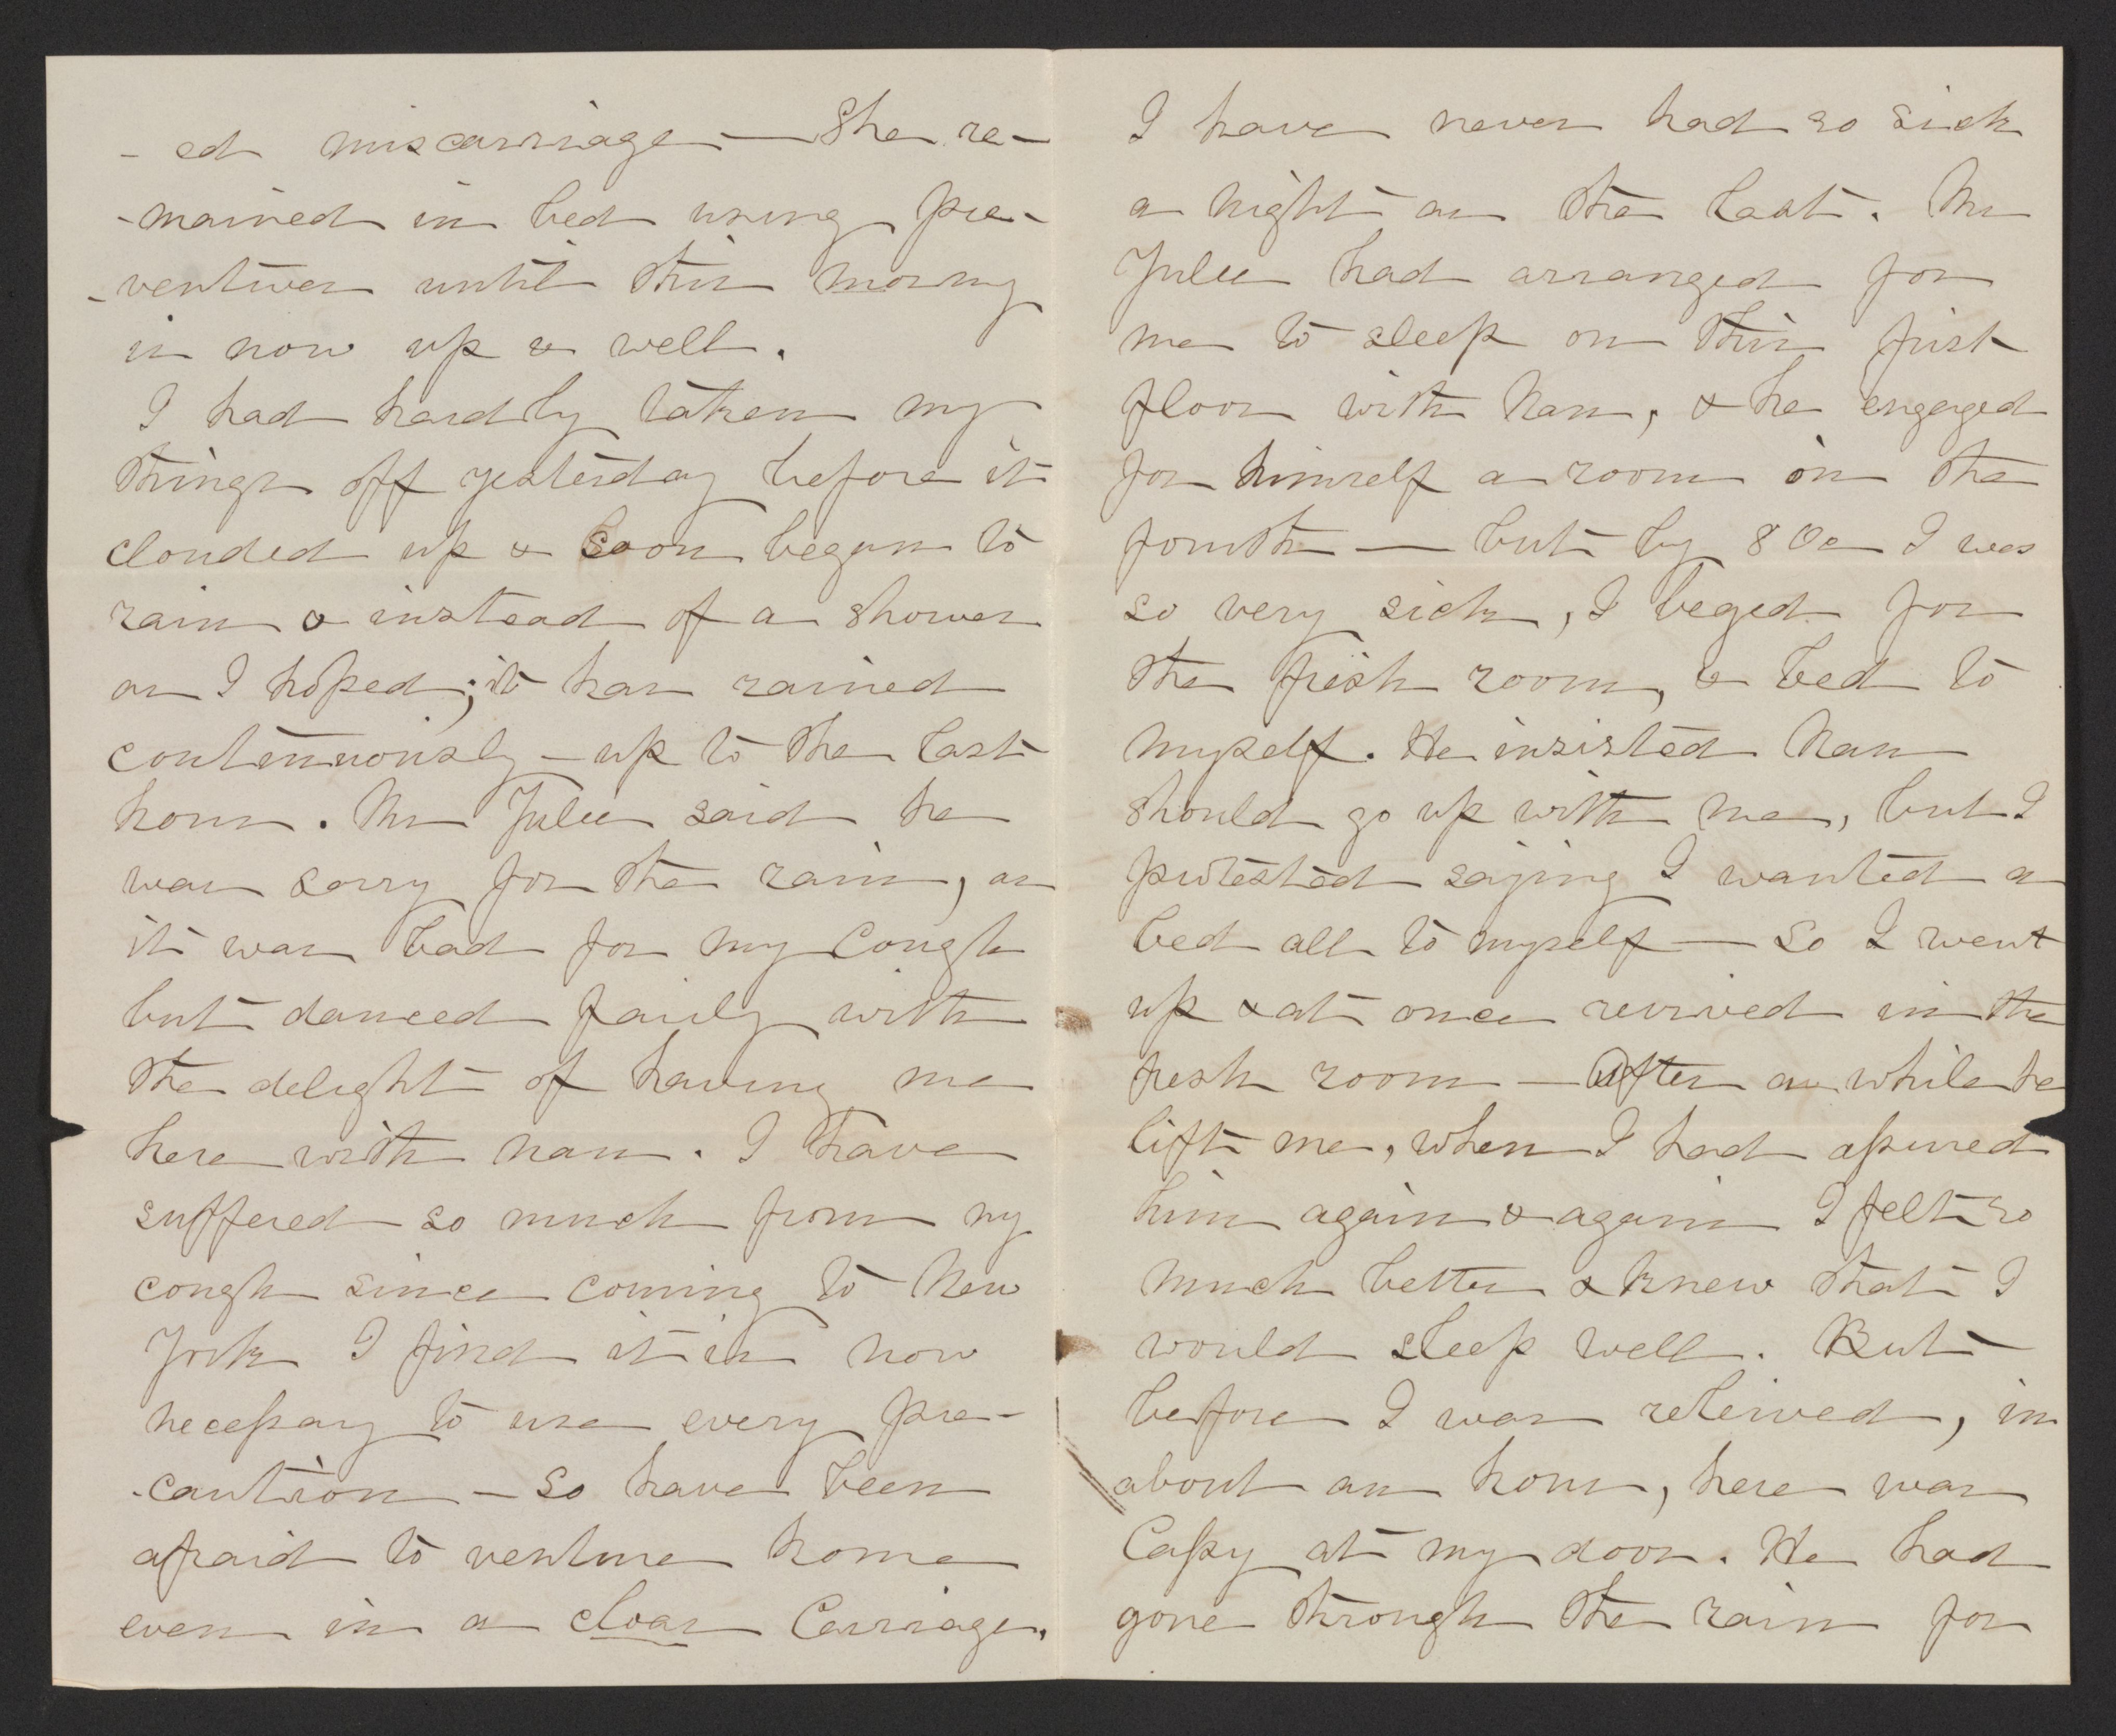 - ed miscarriage — She re-
- mained in bed using pre-
- ventives until this morng
is now up & well.
I had hardly taken my
things off yesterday before it
clouded up & soon began to
rain & instead of a shower
as I hoped; it has rained
contenuously – up to the last
hour. Mr Julee said he
was sorry for the rain, as
it was bad for my cough
but danced fairly with
the delight of having me
here with nan. I have
suffered so much from my
cough since coming to New
York I find it is now
necessary to use every pre-
- caution – so have been
afraid to venture home
even in a close Carriage.
I have never had so sick
a night as the last. Mr
Julee had arranged for
me to sleep on this first
floor with Nan, & he engaged
for himself a room on the
fourth — but by 8 Oc I was
so very sick, I beged for
the fresh room, & bed to
myself. He insisted Nan
should go up with me, but I
protested saying I wanted a
bed all to myself — So I went
up & at once revived in the
fresh room — After a while he
lift me, when I had assured
him again & again I felt so
much better & knew that I
would sleep well. But
before I was releived, in
about an hour, here was
Cassy at my door. He had
gone through the rain for